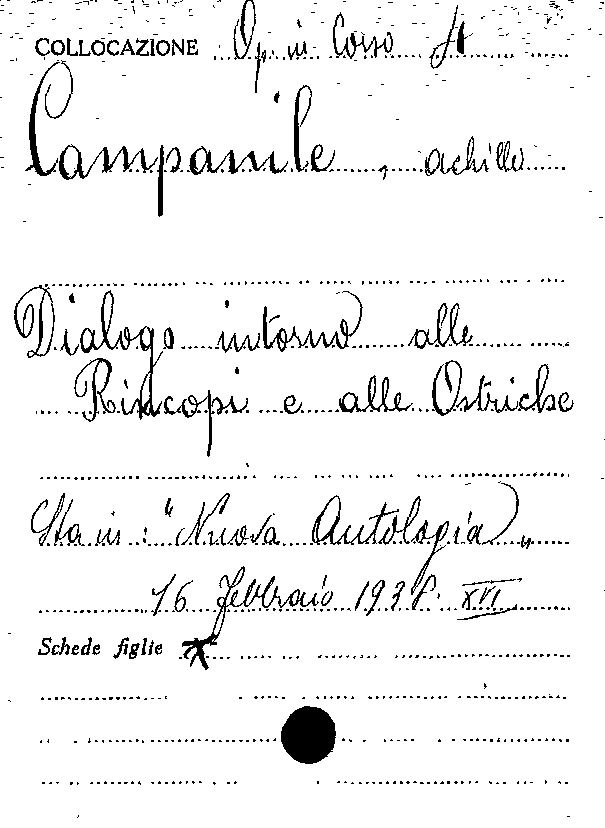 COLLOCAZIONE Op. in Corso A
Campanile, Achille
Dialogo intorno alle
Rincopi e alle Ostriche
Sta in: "Nuova Antologia"
16 Febbraio 1938. XVI
Schede figlie *